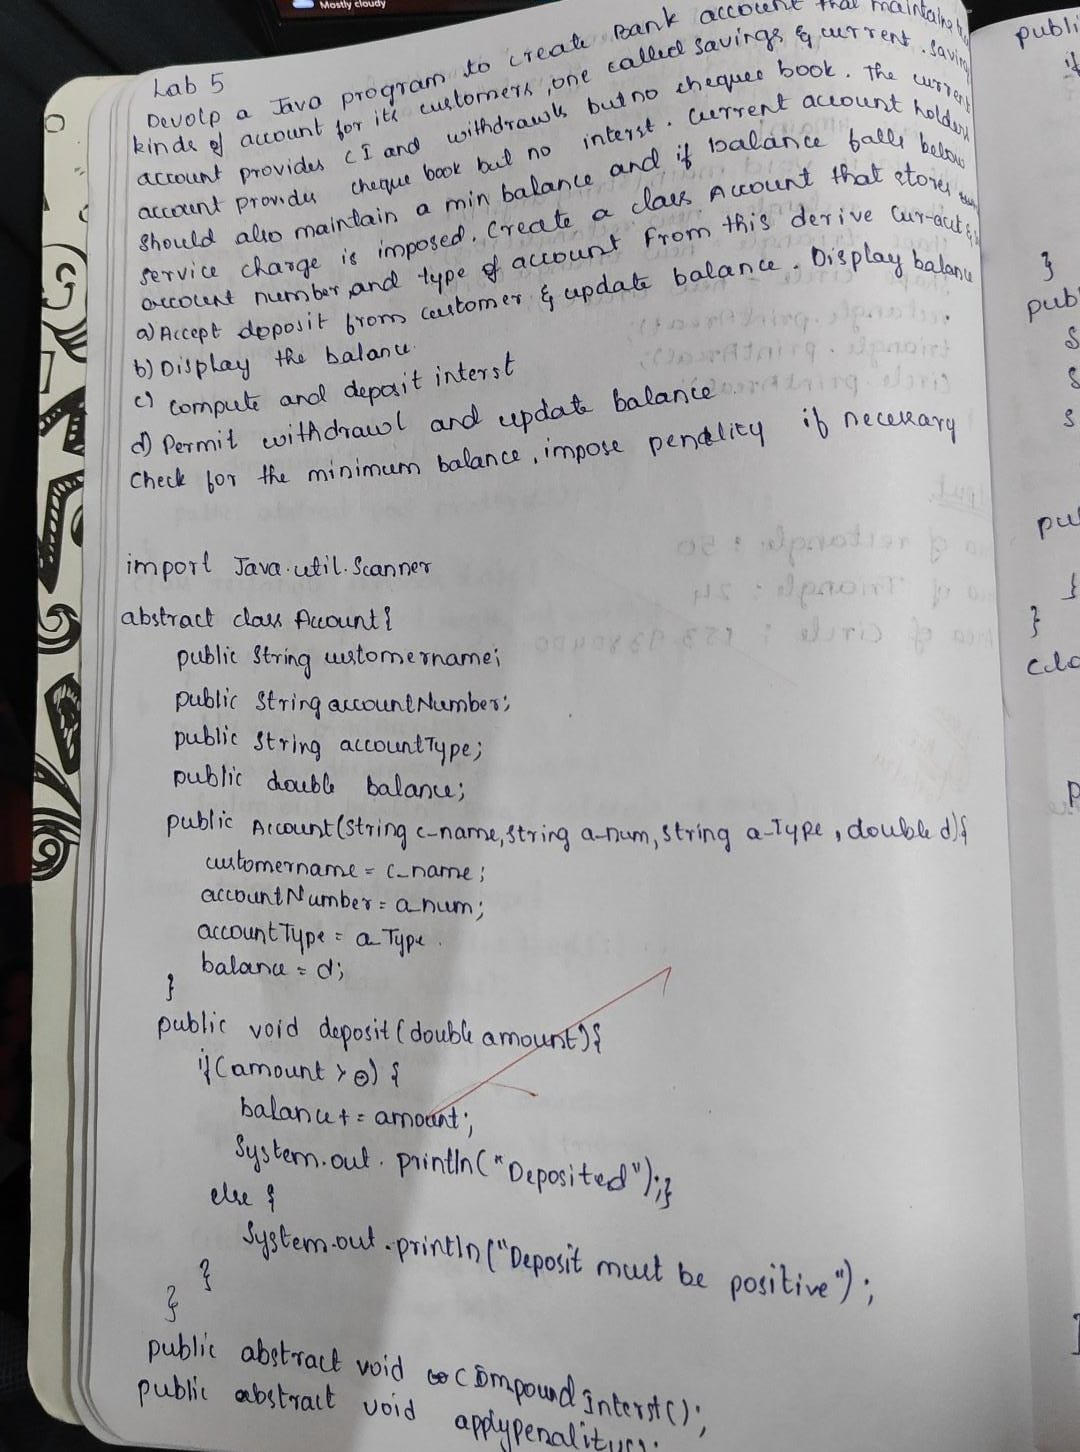 Mostly cloudy
Lab 5
Devolp a Java program to create Bank account that maintains
kinds of account for its customers, one called savings & current. Saving
account provides CI and withdrawls but no cheques book. The current
account provides cheque book but no interst. Current account holders
should also maintain a min balance and if balance falls below
service charge is imposed. Create a class Account that stores
account number, and type of account From this derive Cur-acct &
a) Accept deposit from customer & update balance. Display balance
b) Display the balance.
c) compute and deposit interst
d) Permit withdrawl and update balance
Check for the minimum balance, impose penality if necessary
import Java.util.Scanner
abstract class Account{
public String customername;
public String accountNumber;
public String accountType;
public double balance;
public Account(String c-name, String a-num, String a-Type, double d){
customername = c_name;
accountNumber = a_num;
accountType = a_Type.
balance = d;
}
public void deposit(double amount){
if(amount > 0) {
balance += amount;
System.out.println("Deposited");}
else {
System.out.println("Deposit must be positive");
}
}
public abstract void compound Interst();
public abstract void applypenality();
publi
if
}
pub
S
S
S
pu
}
}
cla
p